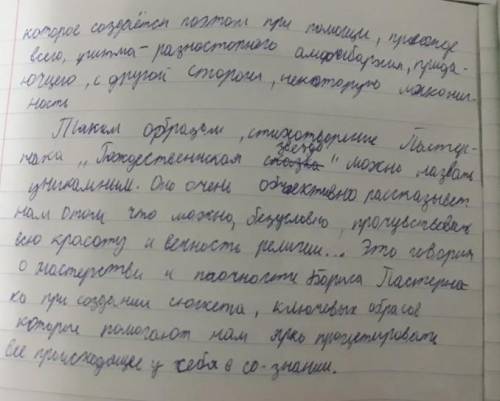 которое создаётся поэтом при помощи, прежде
всего, ритма - разностопного амфибрахия, прида-
ющего, с другой стороны, некоторую лаконич-
ность
Таким образом, стихотворение Пастер-
нака "Рождественская звезда" можно назвать
уникальным. Оно очень объективно рассказывет
нам о том что можно, безусловно, прочувствовать
всю красоту и вечность религии... Это говорит
о мастерстве и Бориса Пастерна-
ка при создании сюжета, ключевых образов
которые помогают нам ярко процетировать
все происходящее у себя в со-знании.